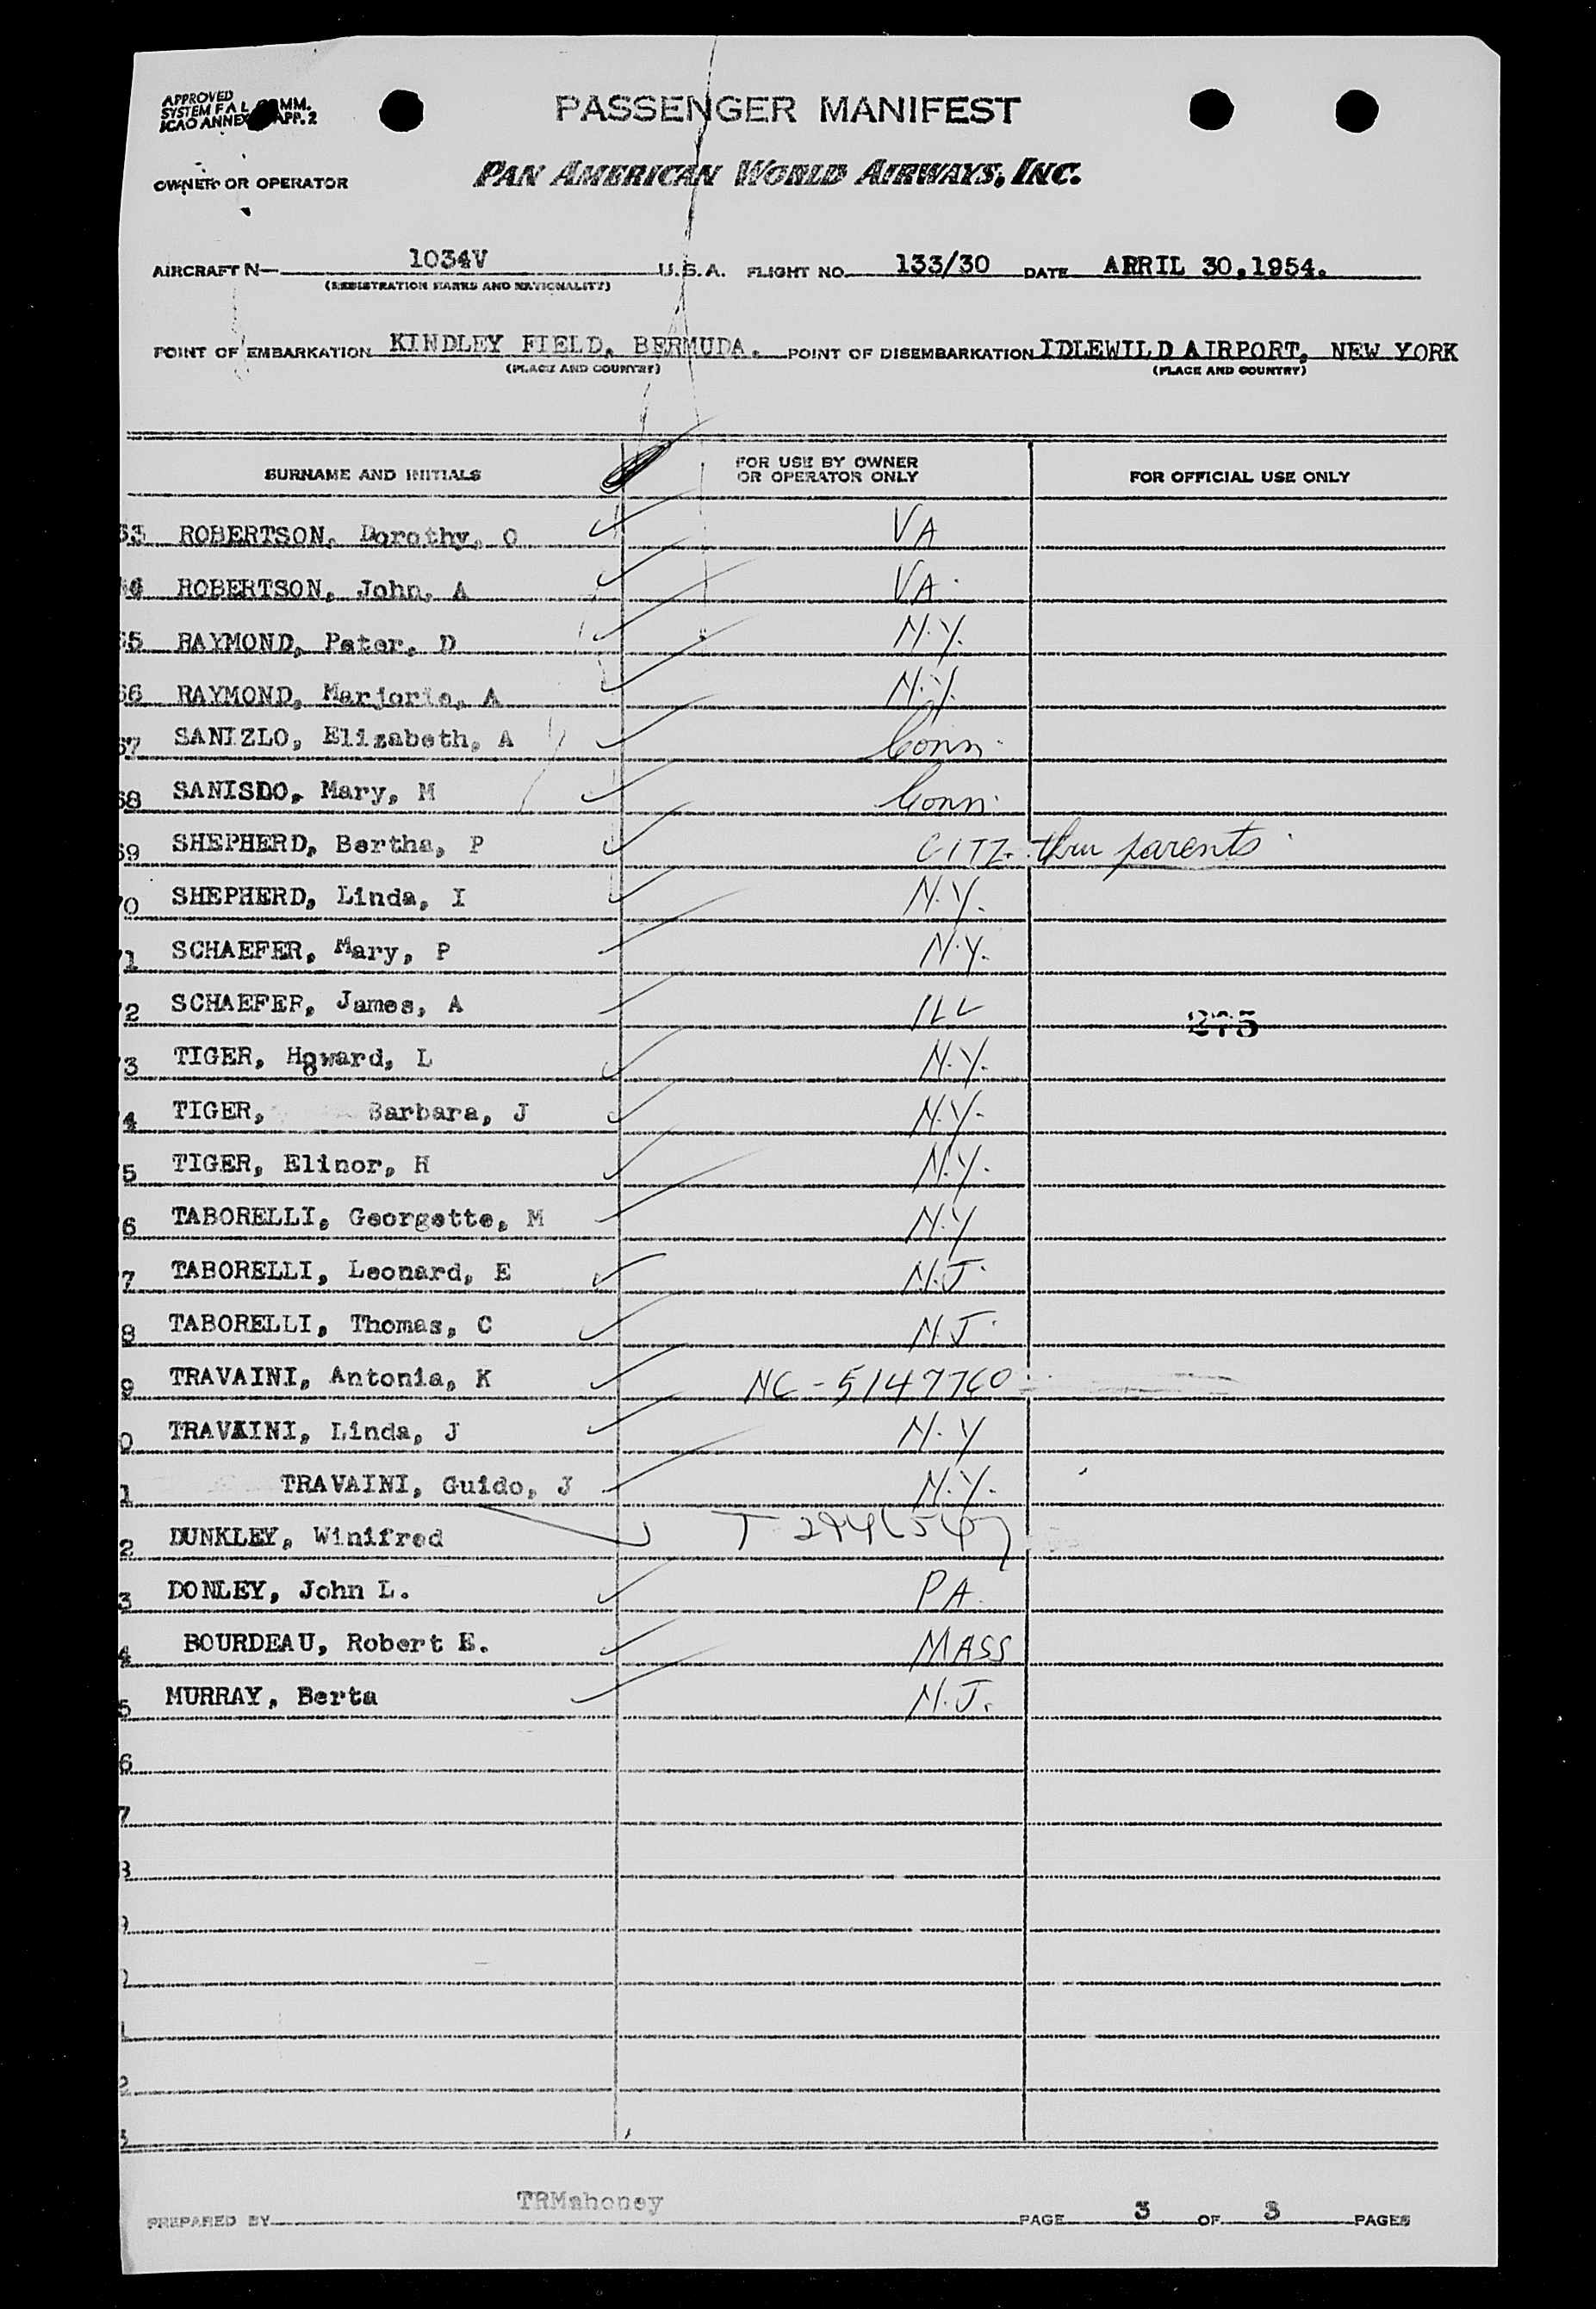 APPROVED
SYSTEM F A L COMM.
ICAO ANNEX APP. 2
PASSENGER MANIFEST
OWNER OR OPERATOR PAN AMERICAN WORLD AIRWAYS, INC.
AIRCRAFT N— 1034V U.S.A. FLIGHT NO. 133/30 DATE APRIL 30,1954.
(REGISTRATION MARKS AND NATIONALITY)
POINT OF EMBARKATION KINDLEY FIELD, BERMUDA. POINT OF DISEMBARKATION IDLEWILD AIRPORT, NEW YORK
(PLACE AND COUNTRY) (PLACE AND COUNTRY)
SURNAME AND INITIALS FOR USE BY OWNER OR OPERATOR ONLY FOR OFFICIAL USE ONLY
63 ROBERTSON, Dorothy, O VA
64 ROBERTSON, John, A VA
65 RAYMOND, Peter, D N.Y.
66 RAYMOND, Marjorie, A N.Y.
67 SANIZLO, Elizabeth, A Conn.
68 SANISDO, Mary, M Conn.
69 SHEPHERD, Bertha, P CITZ. thru parents
70 SHEPHERD, Linda, I N.Y.
71 SCHAEFER, Mary, P N.Y.
72 SCHAEFER, James, A ILL
275
3 TIGER, Howard, L N.Y.
4 TIGER, Barbara, J N.Y.
5 TIGER, Elinor, H N.Y.
6 TABORELLI, Georgette, M N.Y
7 TABORELLI, Leonard, E N.J.
8 TABORELLI, Thomas, C N.J.
9 TRAVAINI, Antonia, K NC-5147760
0 TRAVAINI, Linda, J N.Y
1 TRAVAINI, Guido, J N.Y.
2 DUNKLEY, Winifred
3 DONLEY, John L. PA.
4 BOURDEAU, Robert E. MASS
5 MURRAY, Berta N.J.
6
7
8
9
0
1
2
3
PREPARED BY TRMahoney PAGE 3 OF 3 PAGES